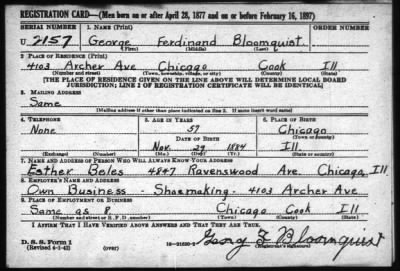 REGISTRATION CARD—(Men born on or after April 28, 1877 and on or before February 16, 1897)
SERIAL NUMBER 1. NAME (Print) ORDER NUMBER
U 2157 George Ferdinand Bloomquist
(First) (Middle) (Last)
2. PLACE OF RESIDENCE (Print)
4103 Archer Ave Chicago Cook Ill
(Number and street) (Town, township, village, or city) (County) (State)
[THE PLACE OF RESIDENCE GIVEN ON THE LINE ABOVE WILL DETERMINE LOCAL BOARD
JURISDICTION; LINE 2 OF REGISTRATION CERTIFICATE WILL BE IDENTICAL]
3. MAILING ADDRESS
Same
[Mailing address if other than place indicated on line 2. If same insert word same]
4. TELEPHONE 5. AGE IN YEARS 6. PLACE OF BIRTH
None 57 Chicago
DATE OF BIRTH (Town or county)
Nov. 29 1884 Ill.
(Exchange) (Number) (Mo.) (Day) (Yr.) (State or country)
7. NAME AND ADDRESS OF PERSON WHO WILL ALWAYS KNOW YOUR ADDRESS
Esther Beles 4847 Ravenswood Ave. Chicago, Ill.
8. EMPLOYER'S NAME AND ADDRESS
Own Business - Shoemaking - 4103 Archer Ave
9. PLACE OF EMPLOYMENT OR BUSINESS
Same as 8 Chicago Cook Ill
(Number and street or R. F. D. number) (Town) (County) (State)
I AFFIRM THAT I HAVE VERIFIED ABOVE ANSWERS AND THAT THEY ARE TRUE.
D. S. S. Form 1
(Revised 4-1-42) (over) Georg F Bloomquist
(Registrant's signature)